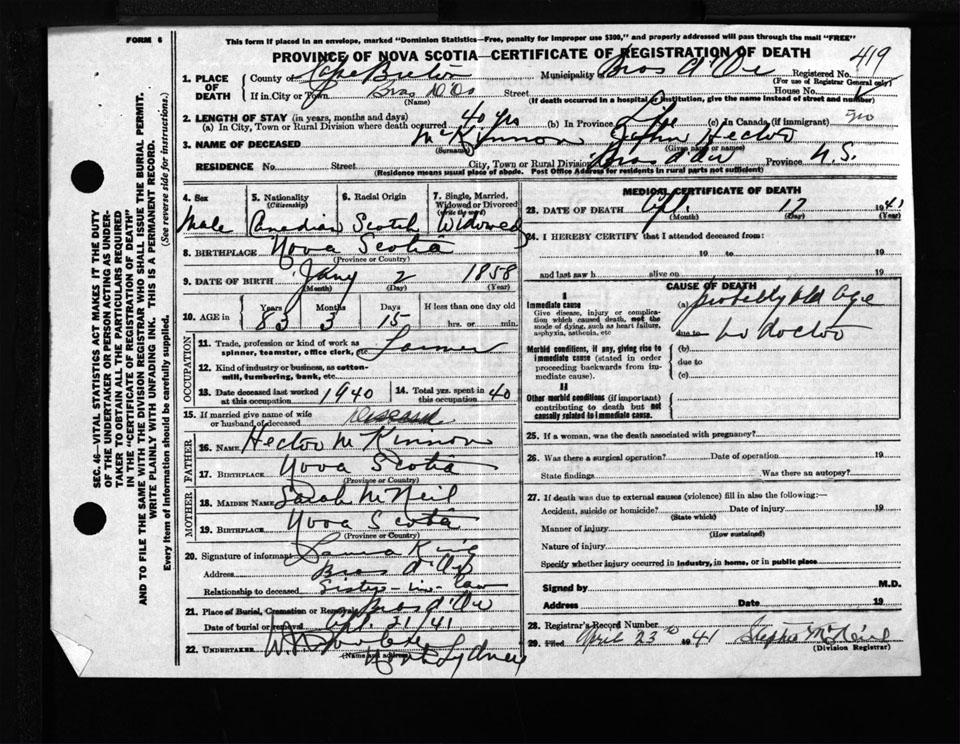 FORM 6
This form if placed in an envelope, marked "Dominion Statistics—Free, penalty for improper use $300," and properly addressed will pass through the mail "FREE"
PROVINCE OF NOVA SCOTIA—CERTIFICATE OF REGISTRATION OF DEATH
419
1. PLACE OF DEATH
County of Cape Breton Municipality Bras d'Or Registered No.
(For use of Registrar General only)
If in City or Town Bras D'Or Street House No.
(Name) (If death occurred in a hospital or institution, give the name instead of street and number)
2. LENGTH OF STAY (in years, months and days)
(a) In City, Town or Rural Division where death occurred 40 yrs (b) In Province Life (c) In Canada (if immigrant)
3. NAME OF DECEASED McKinnon John Hector
(Surname) (Given name or names)
RESIDENCE No. Street City, Town or Rural Division Bras d'Or Province N.S.
(Residence means usual place of abode. Post Office Address for residents in rural parts not sufficient)
4. Sex Male
5. Nationality (Citizenship) Canadian
6. Racial Origin Scotch
7. Single, Married, Widowed or Divorced (write the word) Widowed
8. BIRTHPLACE Nova Scotia
(Province or Country)
9. DATE OF BIRTH Jany 2 1858
(Month) (Day) (Year)
10. AGE in Years 83 Months 3 Days 15 If less than one day old
hrs. or min.
OCCUPATION
11. Trade, profession or kind of work as spinner, teamster, office clerk, etc. Farmer
12. Kind of industry or business, as cotton-mill, lumbering, bank, etc.
13. Date deceased last worked at this occupation 1940
14. Total yrs. spent in this occupation 40
15. If married give name of wife or husband of deceased
FATHER
16. NAME Hector McKinnon
17. BIRTHPLACE Nova Scotia
(Province or Country)
MOTHER
18. MAIDEN NAME Sarah McNeil
19. BIRTHPLACE Nova Scotia
(Province or Country)
20. Signature of informant
Address Bras d'Or
Relationship to deceased Sister in law
21. Place of Burial, Cremation or Removal Bras d'Or
Date of burial or removal Apl. 21/41
22. UNDERTAKER
(Name and Address) North Sydney
MEDICAL CERTIFICATE OF DEATH
23. DATE OF DEATH Apl. 17 1941
(Month) (Day) (Year)
24. I HEREBY CERTIFY that I attended deceased from:
19 to 19
and last saw h alive on 19
CAUSE OF DEATH
I
Immediate cause
Give disease, injury or complication which caused death, not the mode of dying, such as heart failure, asphyxia, asthenia, etc
(a) probably old age
due to no doctor
Morbid conditions, if any, giving rise to immediate cause (stated in order proceeding backwards from immediate cause).
(b)
due to
(c)
II
Other morbid conditions (if important) contributing to death but not causally related to immediate cause.
25. If a woman, was the death associated with pregnancy?
26. Was there a surgical operation? Date of operation 19
State findings Was there an autopsy?
27. If death was due to external causes (violence) fill in also the following:—
Accident, suicide or homicide? Date of injury 19
(State which)
Manner of injury
(How sustained)
Nature of injury
Specify whether injury occurred in industry, in home, or in public place
Signed by M.D.
Address Date 19
28. Registrar's Record Number
29. Filed April 23rd 1941
(Division Registrar)
SEC. 46—VITAL STATISTICS ACT MAKES IT THE DUTY
OF THE UNDERTAKER OR PERSON ACTING AS UNDER-
TAKER TO OBTAIN ALL THE PARTICULARS REQUIRED
IN THE "CERTIFICATE OF REGISTRATION OF DEATH"
AND TO FILE THE SAME WITH THE DIVISION REGISTRAR WHO SHALL ISSUE THE BURIAL PERMIT.
WRITE PLAINLY WITH UNFADING INK. THIS IS A PERMANENT RECORD.
Every item of information should be carefully supplied. (See reverse side for instructions.)